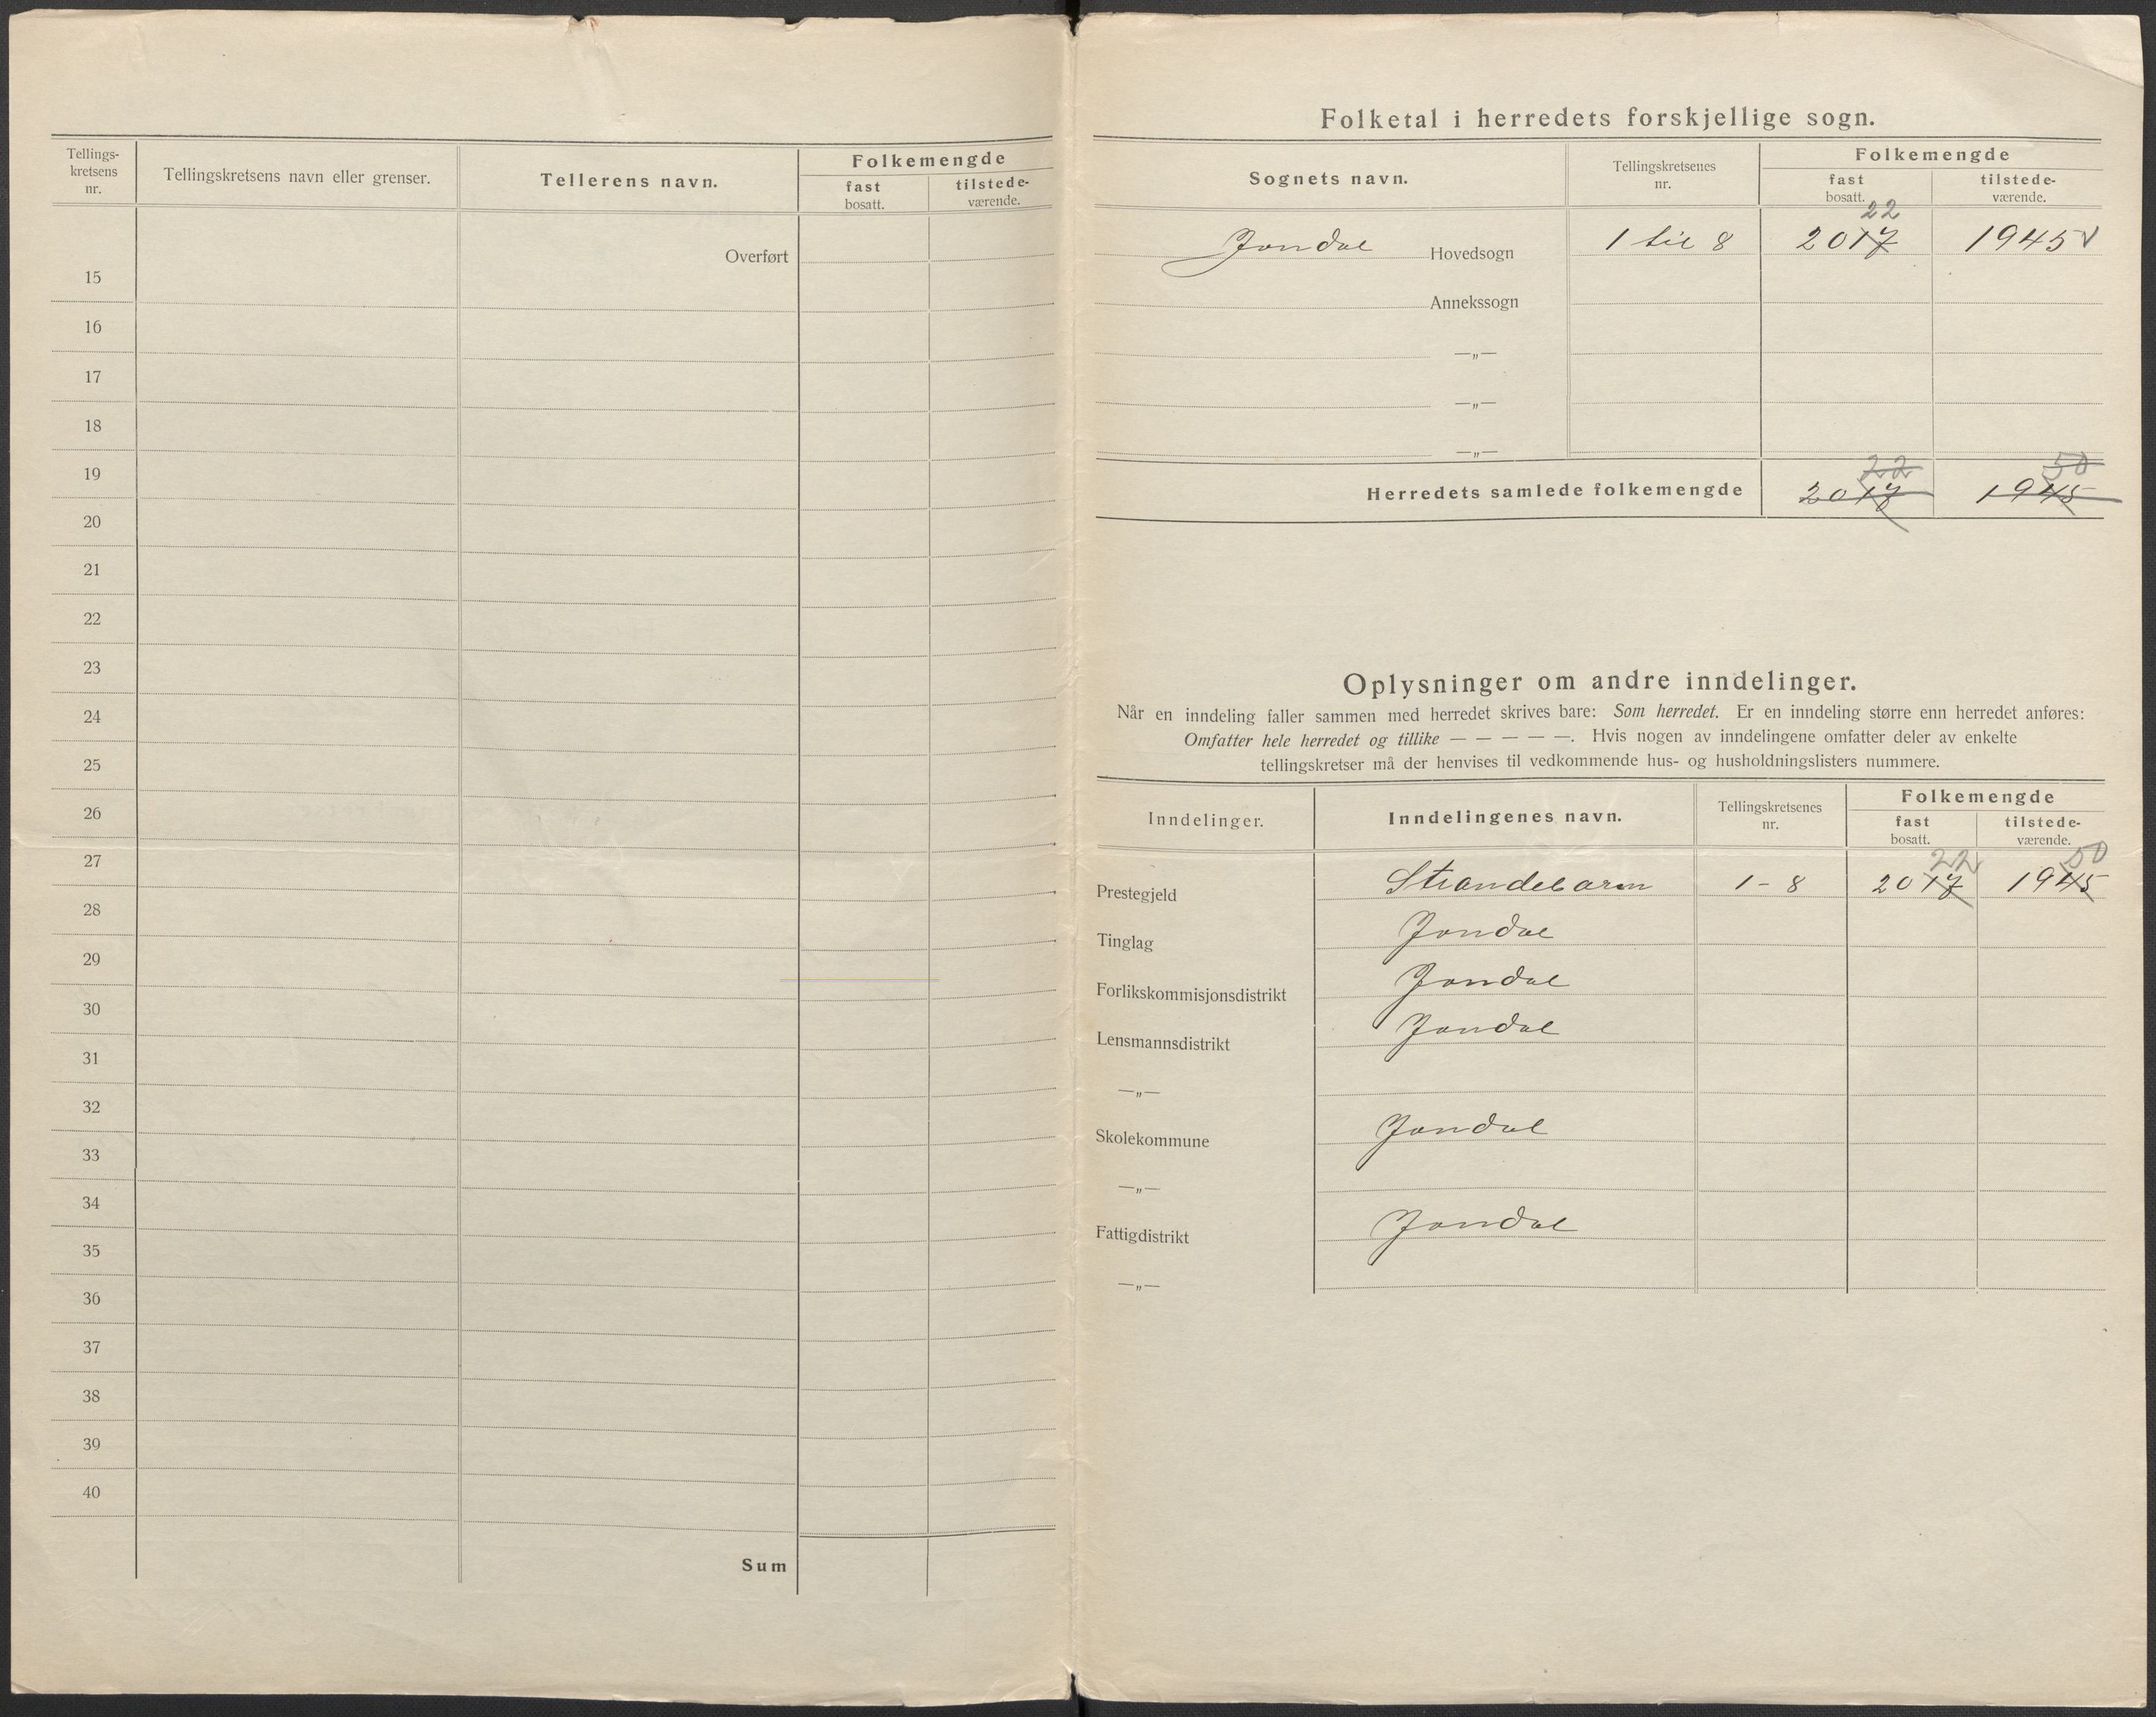 Tellings-
kretsens
nr.
Tellingskretsens navn eller grenser.
Tellerens navn.
Folkemengde
fast
bosatt.
tilstede-
værende.
Overført
15
16
17
18
19
20
21
22
23
24
25
26
27
28
29
30
31
32
33
34
35
36
37
38
39
40
Sum
Folketal i herredets forskjellige sogn.
Sognets navn.
Tellingskretsenes
nr.
Folkemengde
fast
bosatt.
tilstede-
værende.
22
Jondal Hovedsogn 1 til 8 2017 1945 v
Annekssogn
—„—
—„—
—„—
22 50
Herredets samlede folkemengde 2017 1945
Oplysninger om andre inndelinger.
Når en inndeling faller sammen med herredet skrives bare: Som herredet. Er en inndeling større enn herredet anføres:
Omfatter hele herredet og tillike — — — — —. Hvis nogen av inndelingene omfatter deler av enkelte
tellingskretser må der henvises til vedkommende hus- og husholdningslisters nummere.
Inndelinger.
Inndelingenes navn.
Tellingskretsenes
nr.
Folkemengde
fast
bosatt.
tilstede-
værende.
22 50
Prestegjeld Strandebarm 1 - 8 2017 1945
Tinglag Jondal
Forlikskommisjonsdistrikt Jondal
Lensmannsdistrikt Jondal
—„—
Skolekommune Jondal
—„—
Fattigdistrikt Jondal
—„—